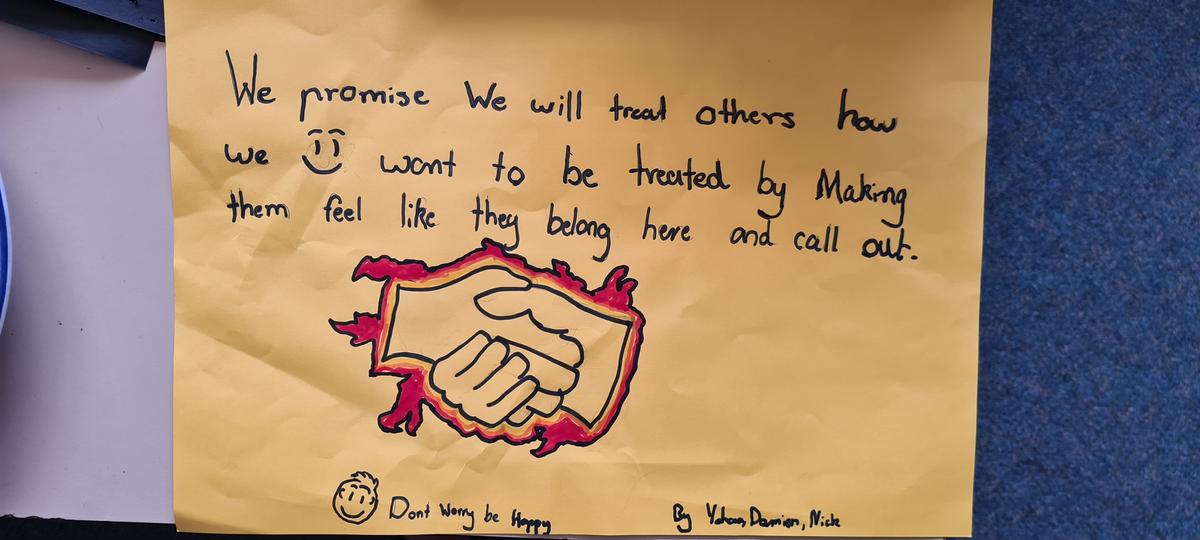 We promise We will treat others how
we want to be treated by Making
them feel like they belong here and call out.
Dont Worry be Happy
By Damien, Nick